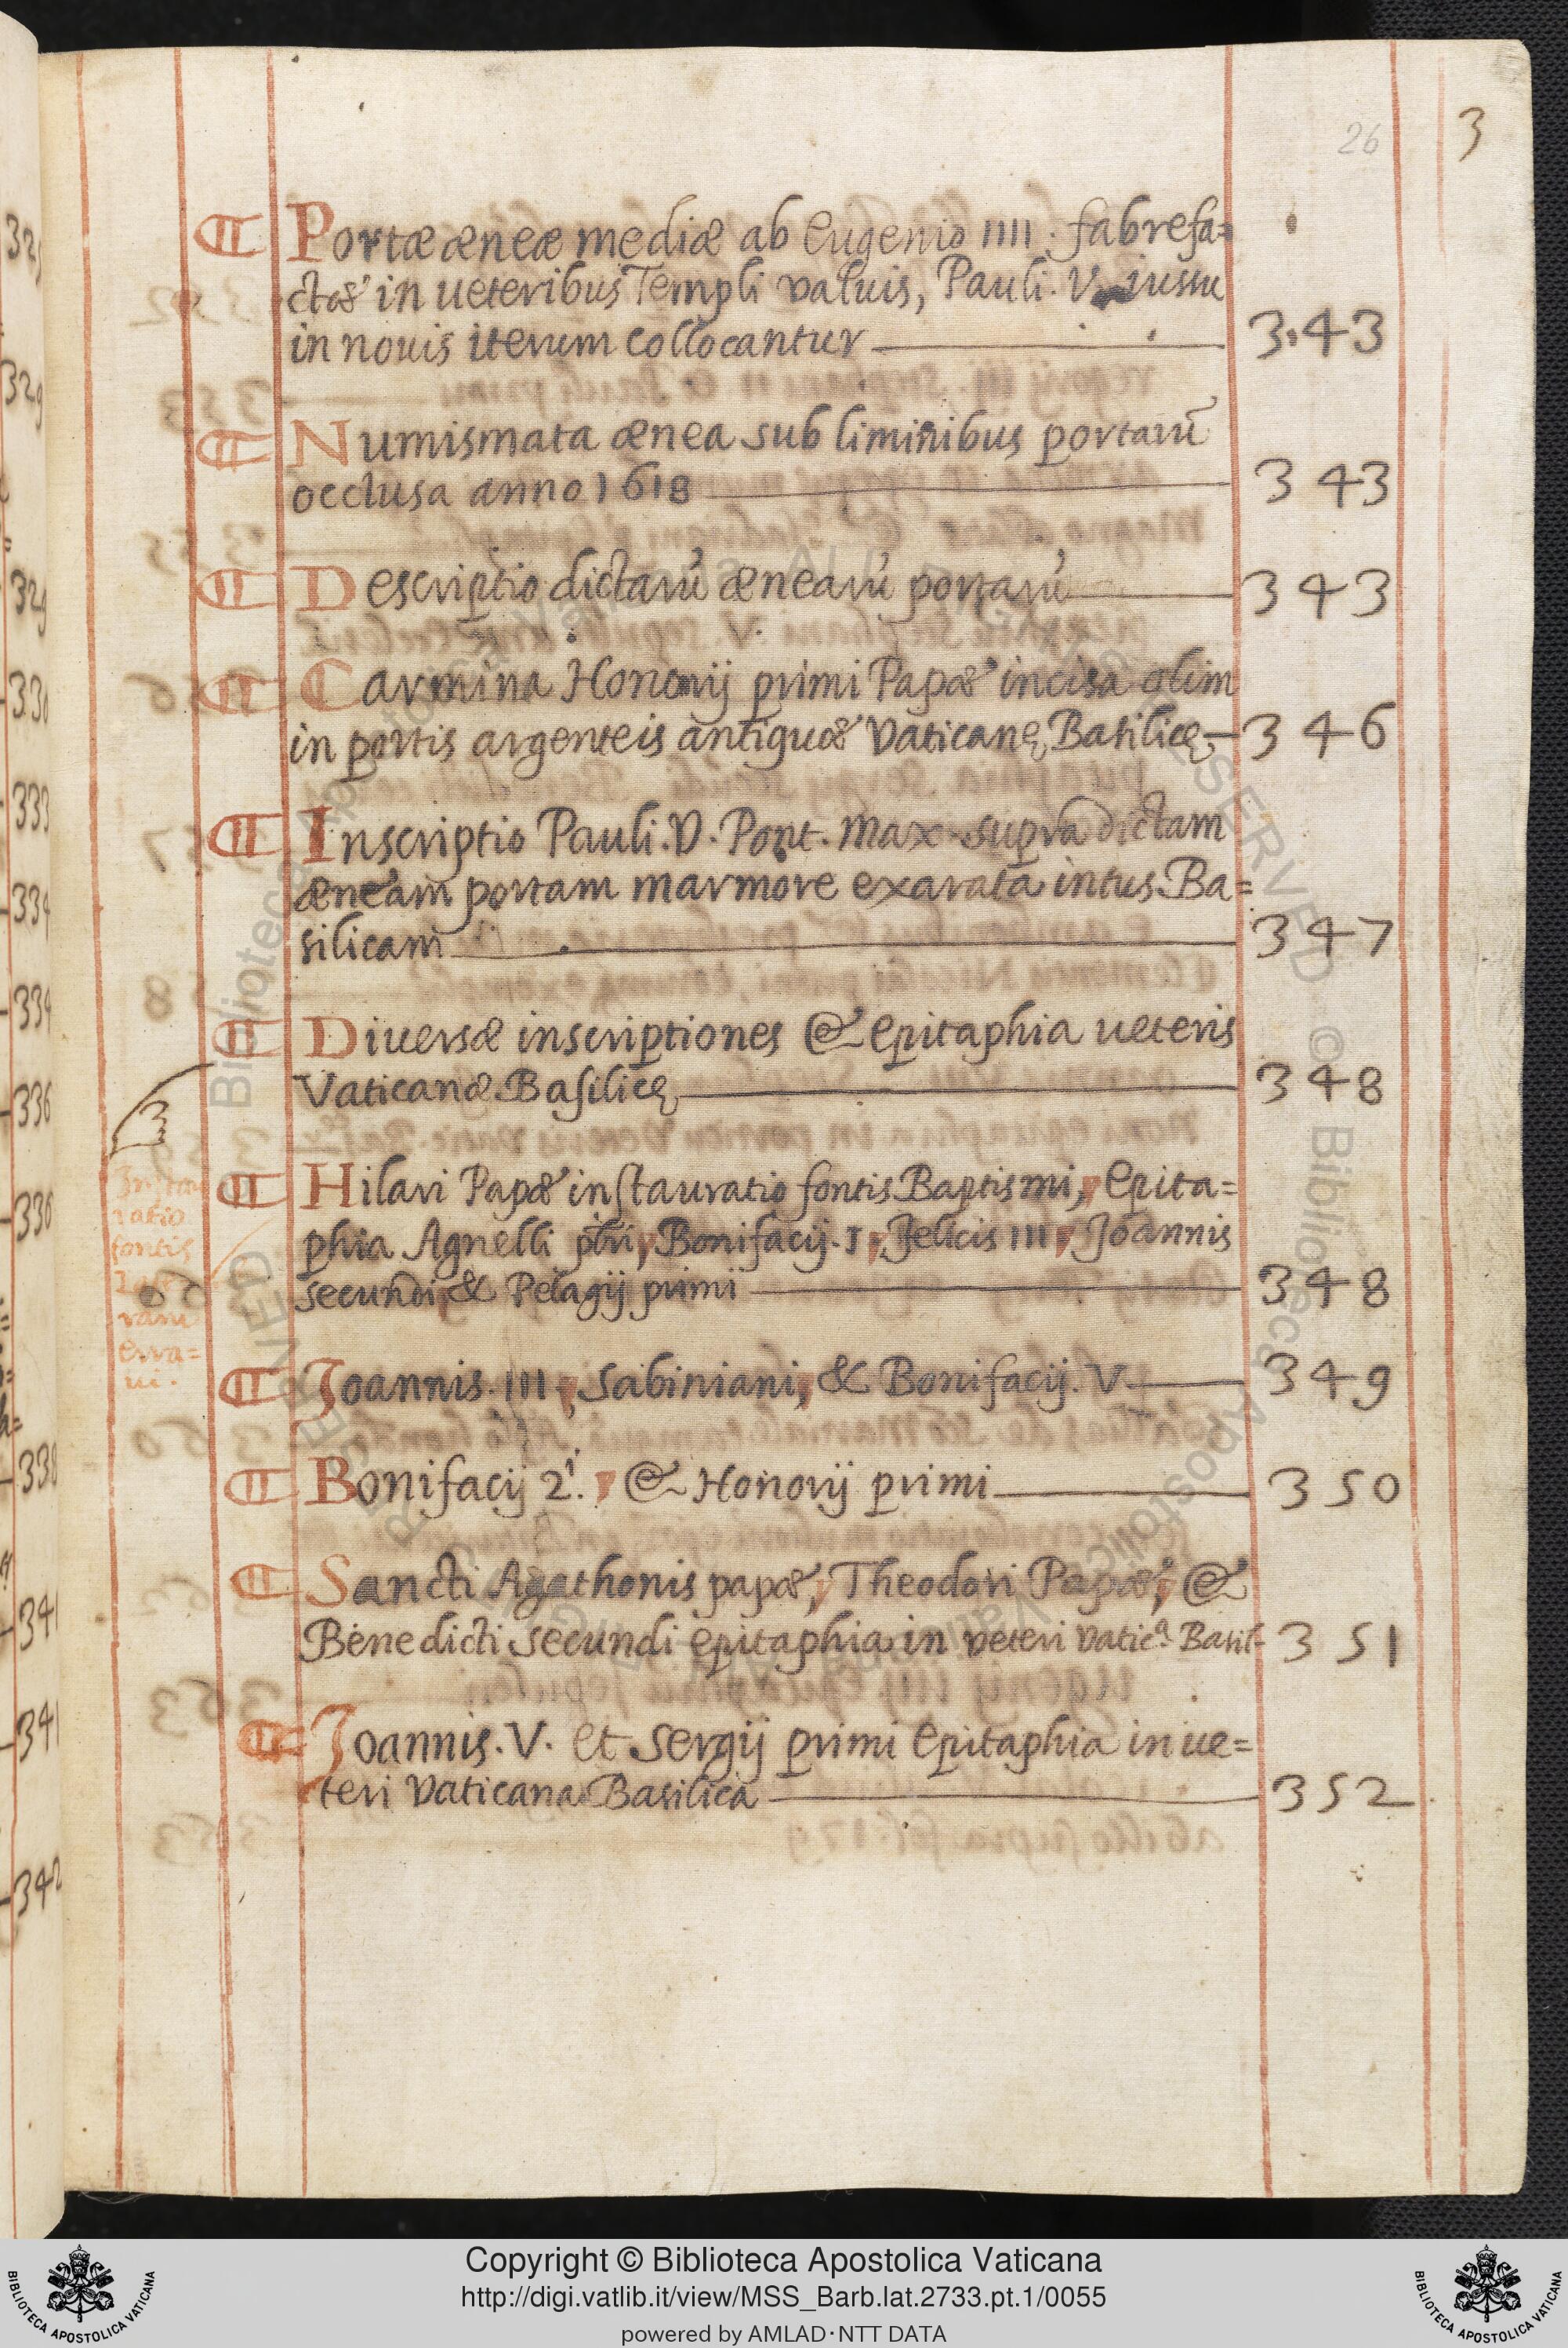 26 3
¶ Portæ æneæ mediæ ab Eugenio IIII. fabrefa=
ctæ in ueteribus Templi valuis, Pauli. V. iussu
in nouis iterum collocantur 343
¶ Numismata ænea sub liminibus portarū
occlusa anno 1618 343
¶ Descriptio dictarū ænearū portarū 343
¶ Carmina Honorij primi Papæ incisa olim
in portis argenteis antiquæ Vaticanę Basilicę 346
¶ Inscriptio Pauli. V. Pont. Max. supra dictam
æneam portam marmore exarata intus Ba=
silicam 347
¶ Diuersæ inscriptiones & epitaphia ueteris
Vaticanæ Basilicę 348
¶ Hilari Papæ instauratio fontis Baptismi, Epita=
phia Agnelli pbri, Bonifacij. I, Felicis III, Joannis
secundi, & Pelagij primi 348
ratio
fontis
erra=
ui.
¶ Joannis. III, Sabiniani, & Bonifacij. V. 349
¶ Bonifacij 2i. & Honorij primi 350
¶ Sancti Agathonis papæ, Theodori Papæ, &
Benedicti secundi epitaphia in veteri Vatica Basil 351
¶ Joannis. V. et Sergij primi Epitaphia in ue=
teri Vaticana Basilica 352
329
330
333
334
334
336
336
338
341
341
342
Copyright © Biblioteca Apostolica Vaticana
http://digi.vatlib.it/view/MSS_Barb.lat.2733.pt.1/0055
powered by AMLAD·NTT DATA
BIBLIOTECA APOSTOLICA VATICANA
BIBLIOTECA APOSTOLICA VATICANA